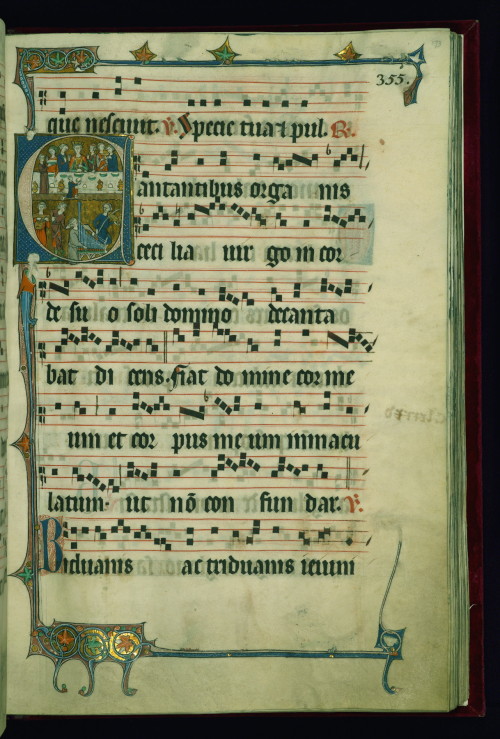 355.
que nesciuit. V. Specie tua ⁊ pul. R.
Cantantibus orga nis
ceci lia uir go in cor
de su o soli domino decanta
bat di cens. fiat do mine cor me
um et cor pus me um inmacu
latum. ut nō con fun dar. V.
Biduanis ac triduanis ieiuni